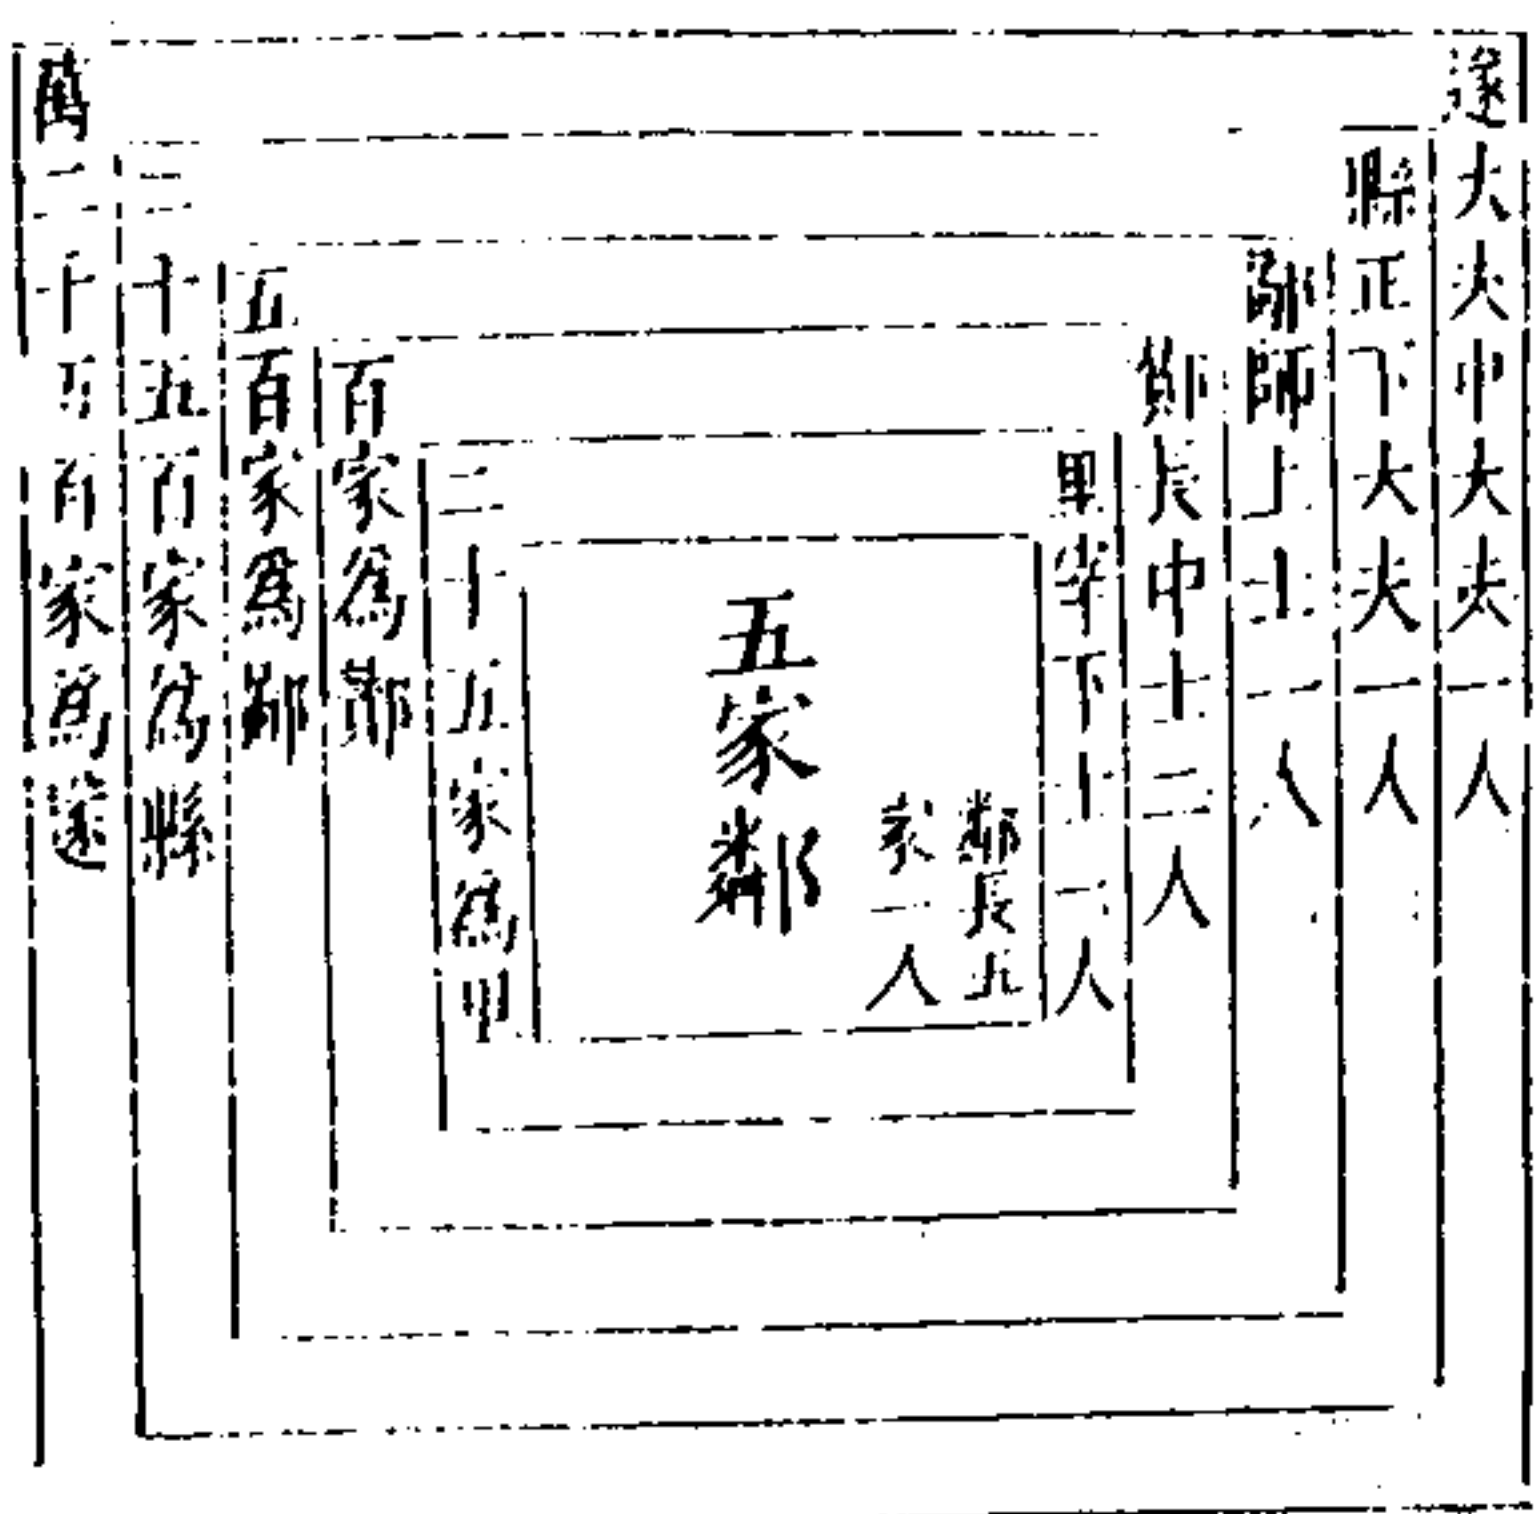 遂大夫中大夫一人
縣正下大夫一人
鄙師上士一人
鄼長中士二人
里宰下士一人
鄰長五
家一人
五家鄰
二十五家爲里
百家爲鄼
五百家爲鄙
二千五百家爲縣
萬二千五百家爲遂